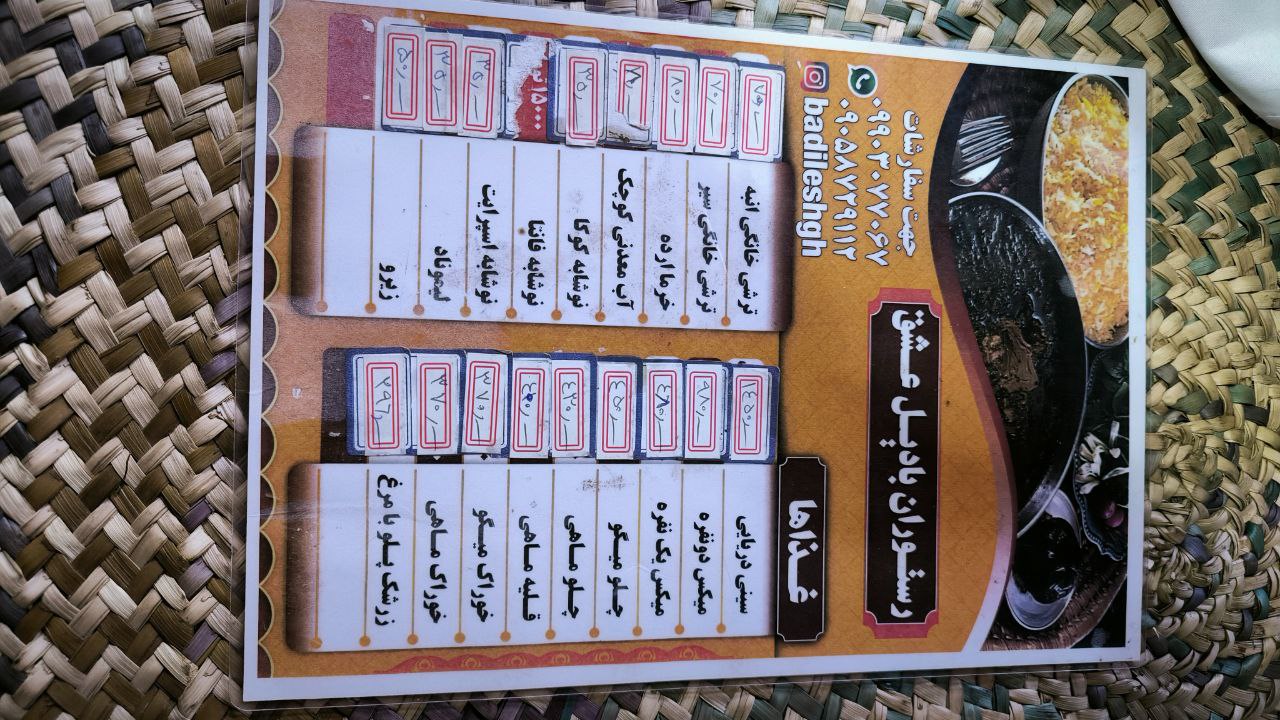 رستوران بادیل عشق
جهت سفارشات
۰۹۹۰۳۰۷۷۰۶۷
۰۹۰۵۸۷۳۹۱۱۲
badileshgh
غذاها
سینی دریایی ۱٤۵۰
میکس دونفره ۹۸۰
میکس یک نفره ٤۸۰
چلو میگو ٤۵۰
چلو ماهی ٤۳۰
قلیه ماهی
خوراک میگو ۳۷۰
خوراک ماهی ۳۷۰
زرشک پلو با مرغ ۲۹۶
ترشی خانگی انبه ۷۵
ترشی خانگی سیر ۷۰
خرما ارده ۸۰
آب معدنی کوچک
نوشابه کوکا ۳۵
نوشابه فانتا ۱۵۰۰۰
نوشابه اسپرایت ۳۵
لیموناد ۳۵
زیرو ۵۰